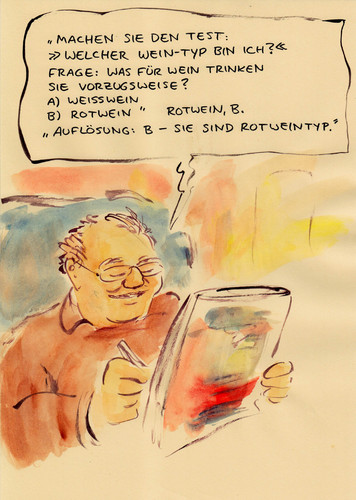 „MACHEN SIE DEN TEST:
»WELCHER WEIN-TYP BIN ICH?«
FRAGE: WAS FÜR WEIN TRINKEN
SIE VORZUGSWEISE?
A) WEISSWEIN
B) ROTWEIN“ ROTWEIN, B.
„AUFLÖSUNG: B – SIE SIND ROTWEINTYP.“